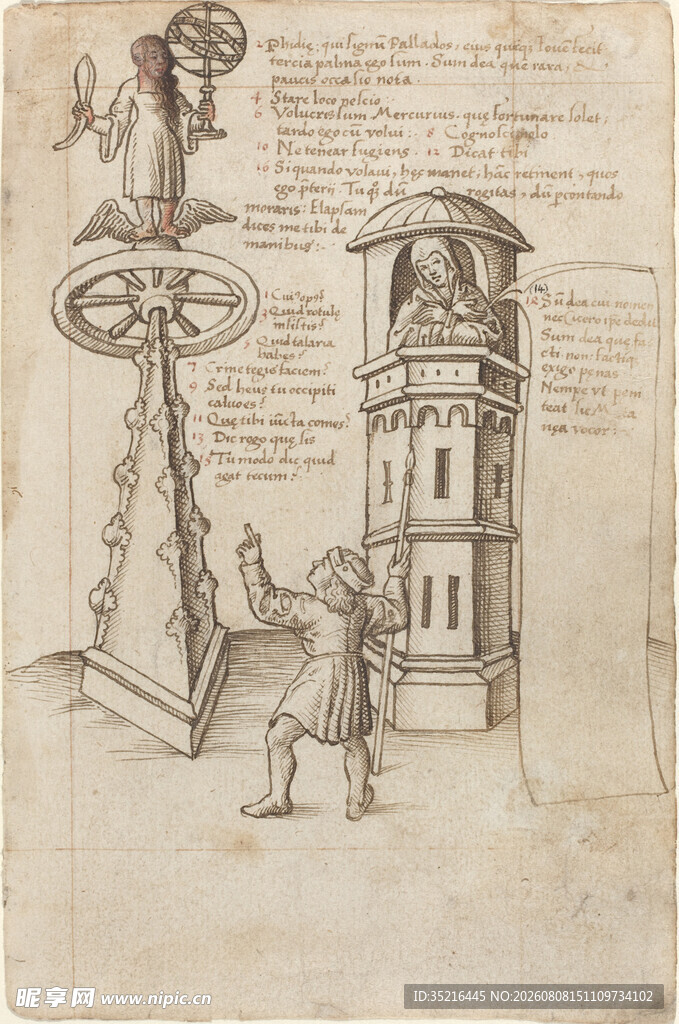 2 Phidię: qui signũ Pallados, eius quéqz Iovẽ fecit
tercia palma ego sum. Sum dea quę rara,
paucis occasio nota.
4 Stare loco nescio
6 Volucris sum Mercurius. quę fortunare solet,
tardo ego cũ volui: 8 Cognosci nolo
10 Ne tenear fugiens. 12 Dicat tibi
16 Si quando volavi, hęc manet: hãc retinent, quos
ego p̃terii. Tu qz dũ rogitas, dũ p̃contando
moraris: Elapsam
dices me tibi de
manibus:
1 Cui'opus?
3 Quid rotulę
insistis?
5 Quid talaria
habes?
7 Crine tegis faciem?
9 Sed heus tu occipiti
calvo es?
11 Quę tibi iũcta comes?
13 Dic rogo quę sis
15 Tu modo dic quid
agat tecum?
(14)
Sũ dea cui nomen
nec Cicero ipe dedit
Sum dea quę fa
cti non factiqz
exigo penas
Nempe vt peni
teat sic
nęa vocor:
昵享网 www.nipic.cn
ID:35216445 NO:20260808151109734102